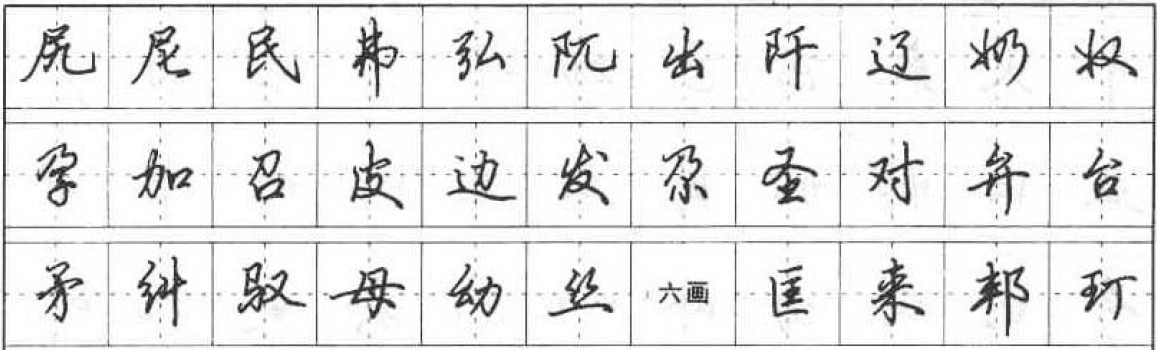 尻尼民弗弘阢出阡辽奶奴
孕加召皮边发尕圣对弁台
矛纠驭母幼丝六画匡耒邦玎